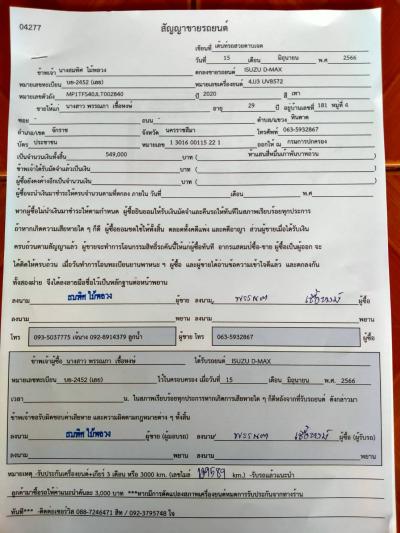 04277
สัญญาขายรถยนต์
เขียนที่ เต้นท์รถสวยตาบเจต
วันที่ 15 เดือน มิถุนายน พ.ศ 2566
ข้าพเจ้า นางสมพิศ ไม้พลวง ตกลงขายรถยนต์ ISUZU D-MAX
หมายเลขทะเบียน บธ-2452 (เลย) หมายเลขเครื่องยนต์ 4JJ3 UV8572
หมายเลขตัวถัง MP1TFS40JLT002840 ปี 2020 สี เทา
ขายให้แก่ นางสาว พรรณภา เชื้อหงษ์ อายุ 29 ปี อยู่บ้านเลขที่ 181 หมู่ที่ 4
ซอย - ถนน - ตำบล/แขวง หินดาด
อำเภอ/เขต จักราช จังหวัด นครราชสีมา โทรศัพท์ 063-5932867
บัตร ประชาชน หมายเลข 1 3016 00115 22 1 ออกให้ ณ กรมการปกครอง
เป็นจำนวนเงินทั้งสิ้น 549,000 บาท ( ห้าแสนสี่หมื่นเก้าพันบาทถ้วน )
ข้าพเจ้าได้รับมัดจำแล้วเป็นเงิน บาท ( )
ผู้ซื้อยังคงค้างอีกเป็นจำนวนเงิน บาท ( )
ผู้ซื้อจะนำเงินมาชำระให้ครบจำนวนตามที่ตกลง ภายใน วันที่ เดือน พ.ศ
หากผู้ซื้อไม่นำเงินมาชำระให้ตามกำหนด ผู้ซื้อยินยอมให้ริบเงินมัดจำและคืนรถให้ทันทีในสภาพเรียบร้อยทุกประการ
ถ้าหากเกิดความเสียหายใด ๆ ก็ดี ผู้ซื้อยอมชดใช้ให้ทั้งสิ้น ตลอดทั้งคดีแพ่ง และคดีอาญา ส่วนผู้ขายเมื่อได้รับเงิน
ครบถ้วนตามสัญญาแล้ว ผู้ขายจะทำการโอนกรรมสิทธิ์รถคันนี้ให้แก่ผู้ซื้อทันที อากรแสตมป์ซื้อ-ขาย ผู้ซื้อเป็นผู้ออก จะ
ได้คิดให้ครบถ้วน เมื่อวันทำการโอนทะเบียนยานพาหนะ ๆ ผู้ซื้อ และผู้ขายได้อ่านข้อความเข้าใจดีแล้ว และตกลงกัน
ทั้งสองฝ่าย จึงได้ลงลายมือชื่อไว้เป็นหลักฐานต่อหน้าพยาน
ลงนาม สมพิศ ไม้พลวง ผู้ขาย ลงนาม พรรณภา เชื้อหงษ์ ผู้ซื้อ
ลงนาม พยาน ลงนาม พยาน
โทร 093-5037775 เจ้นาง 092-8914379 ลูกน้ำ ผู้ขาย โทร 063-5932867 ผู้ซื้อ
ข้าพเจ้าผู้ซื้อ นางสาว พรรณภา เชื้อหงษ์ ได้รับรถยนต์ ISUZU D-MAX
หมายเลขทะเบียน บธ-2452 (เลย) ไว้ในครอบครอง เมื่อวันที่ 15 เดือน มิถุนายน พ.ศ. 2566
เวลา น. ในสภาพเรียบร้อยทุกประการหากเกิดการเสียหายใด ๆ ก็ดีหลังจากที่รับรถยนต์ ดังกล่าวมา
ข้าพเจ้าขอรับผิดชอบค่าเสียหาย และความผิดตามกฎหมายต่าง ๆ ทั้งสิ้น
ลงนาม สมพิศ ไม้พลวง ผู้ขาย (ผู้มอบรถ) ลงนาม พรรณภา เชื้อหงษ์ ผู้ซื้อ (ผู้รับรถ)
ลงนาม พยาน ลงนาม พยาน
หมายเหตุ -รับประกันเครื่องยนต์+เกียร์ 3 เดือน หรือ 3000 km. (เลขไมล์ km.) -รับรถแล้วแนะนำ
ลูกค้ามาซื้อรถให้ค่าแนะนำคันละ 3,000 บาท ***หากมีการดัดแปลงสภาพเครื่องยนต์หมดการรับประกันจากทางร้าน
ทันที*** -ติดต่อเซอร์วิส 088-7246471 สิท / 092-3795748 ใจ